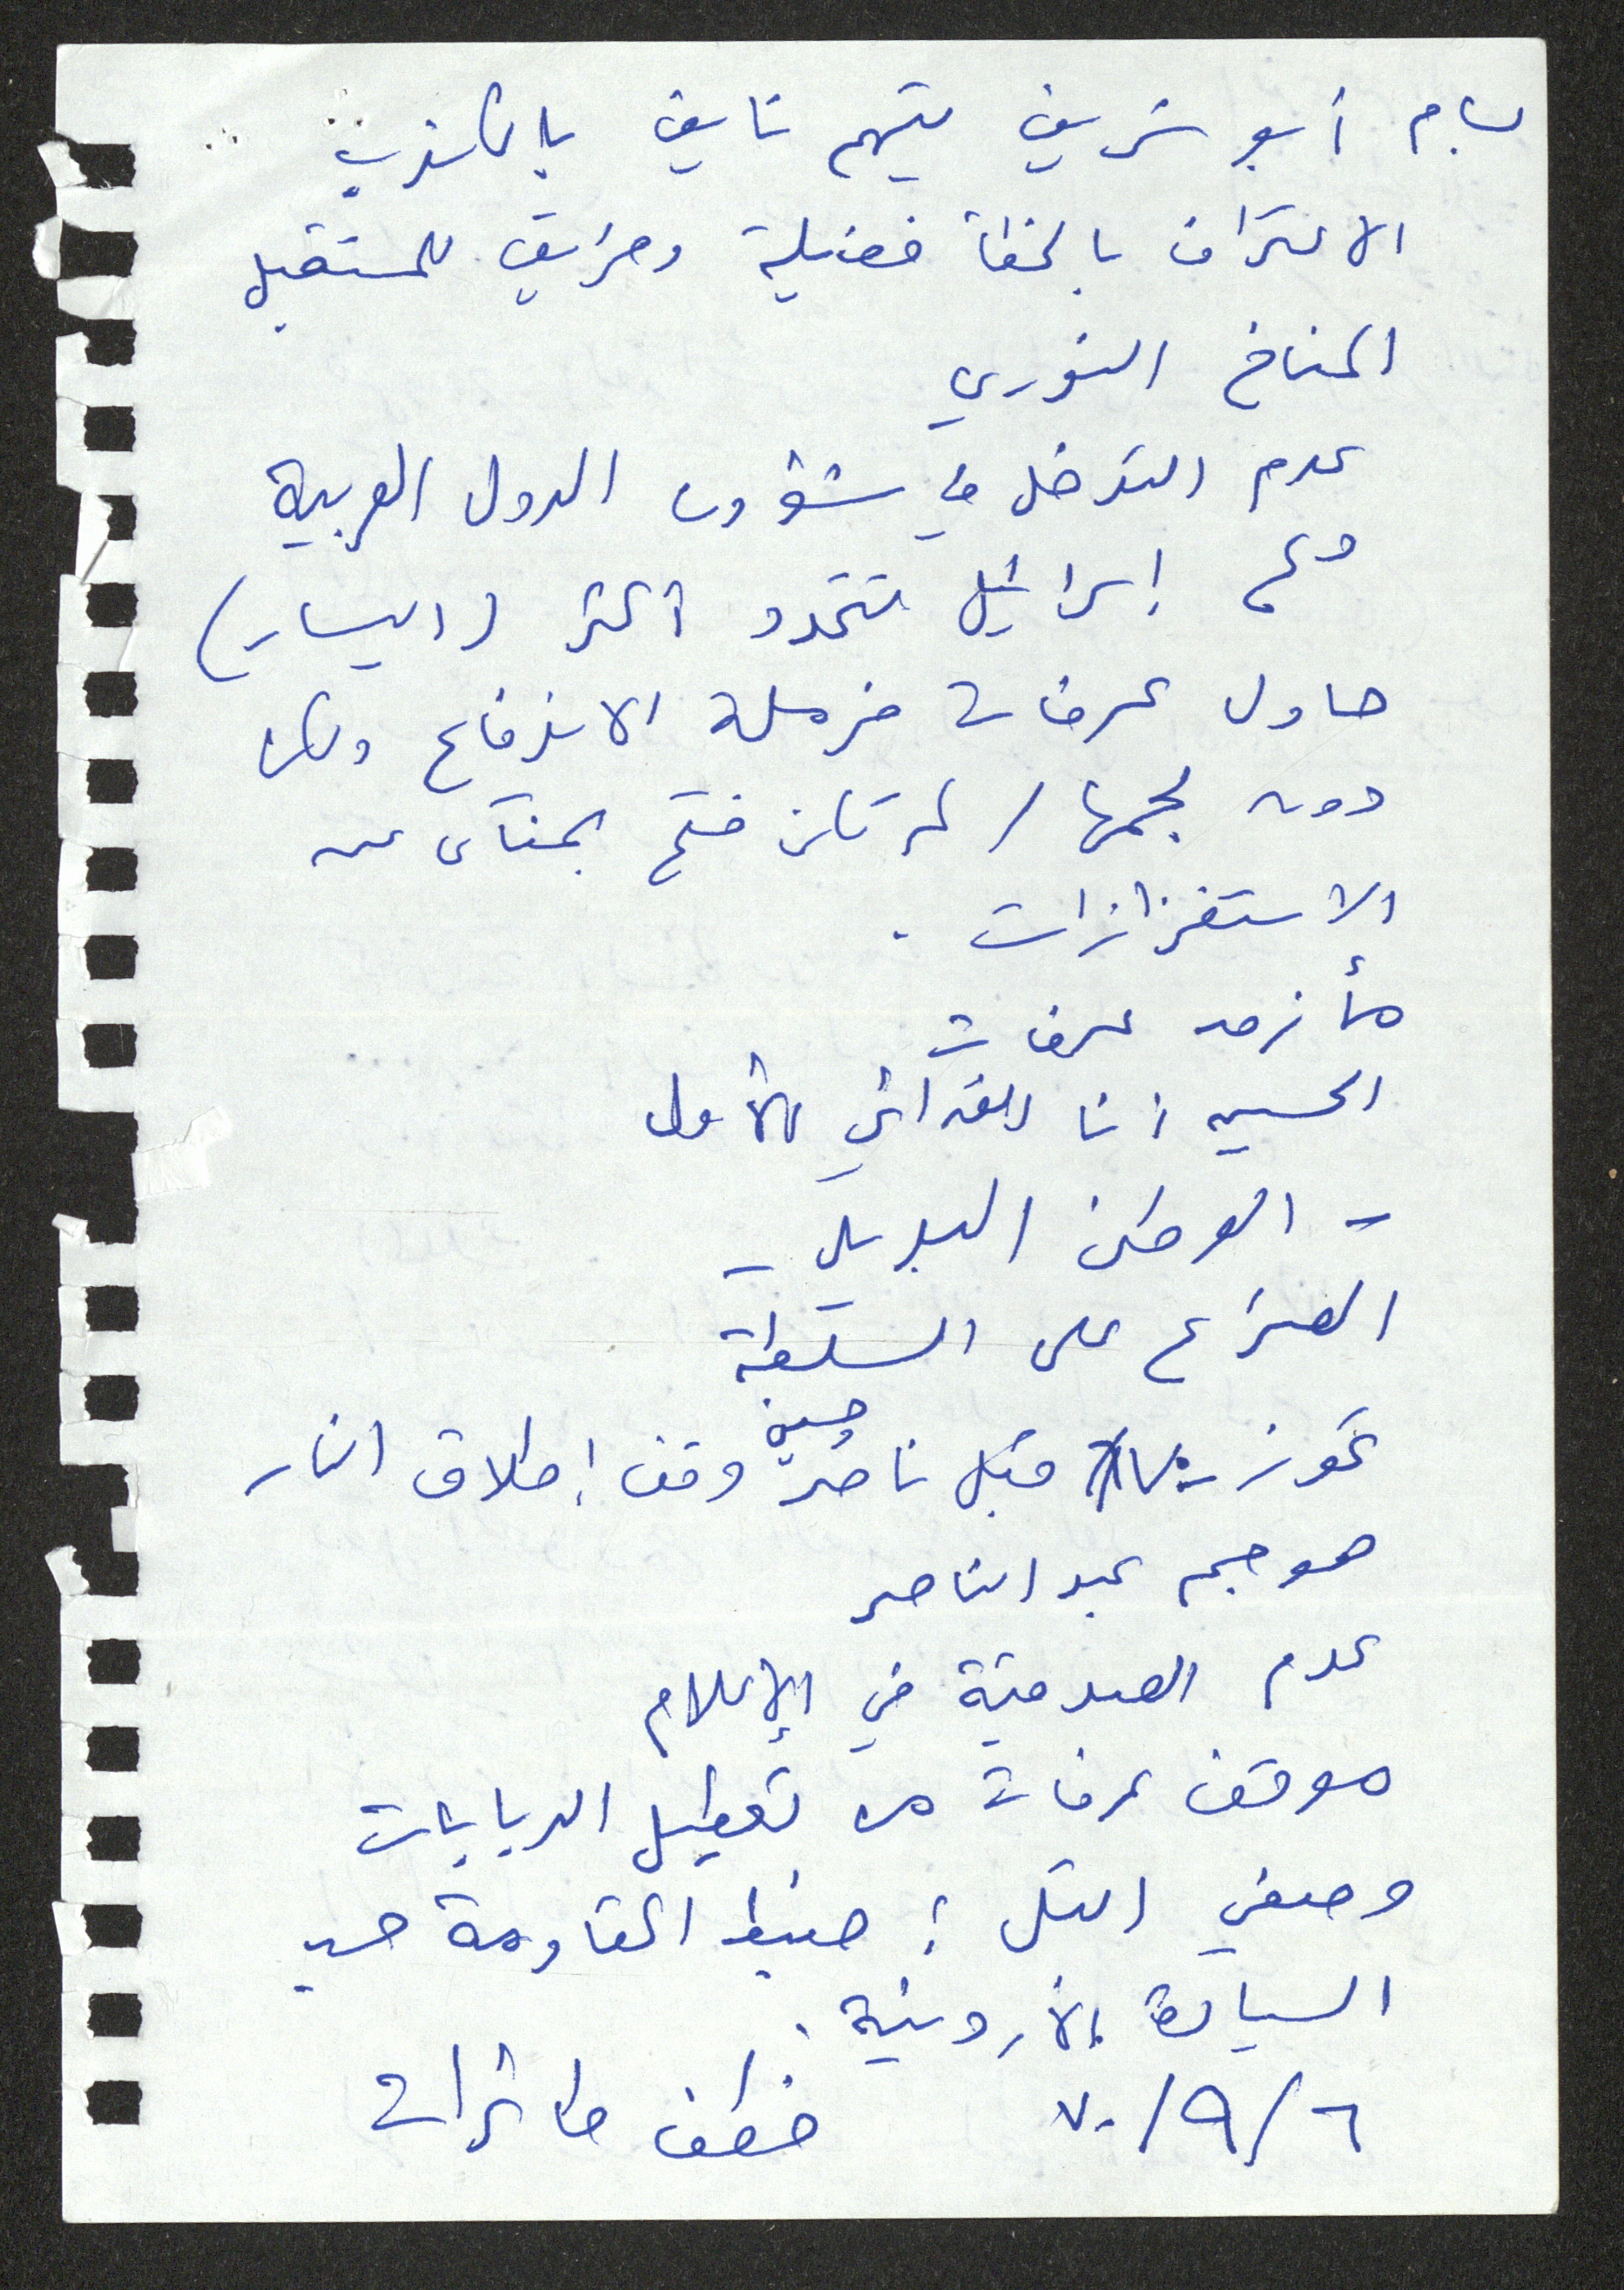 بسام أبو شريف يتهم نايف بالكذب
الاعتراف بالخطأ فضيلة وطريق للمستقبل
المناخ الثوري
عدم التدخل في شؤون الدول العربية
دعم إسرائيل تتحدد أكثر (اليسار)
حاول عرفات فرملة الاندفاع ولكن
دون لجمها / لم تكن فتح بمنأى عن
الاستفزازات .
مأزق عرفات
الحسين أنا الفدائي الأول
- الوطن البديل -
الصراع على السلطة
تموز ٧٠ قبل ناصر وحسين وقف إطلاق النار
هوجم عبد الناصر
عدم الصدقية في الإعلام
موقف عرفات من تعطيل الدبابات
وصفي التل : ضبط المقاومة حسب
السيادة الأردنية .
٦/٩/٧٠ خطف طائرات